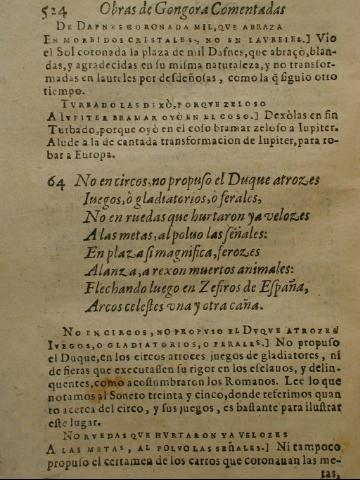 524 Obras de Gongora Comentadas
DE DAFNES CORONADA MIL, QUE ABRAZA
EN MORBIDOS CRISTALES, NO EN LAVRELES.] Vio
el Sol coronada la plaza de mil Dafnes, que abraçò, blan-
das, y agradecidas en su misma naturaleza, y no transfor-
madas en laureles por desdeñosas, como la q̃ siguio otro
tiempo.
TVRBADO LAS DIXÒ, PORQVE ZELOSO
A IVPITER BRAMAR OYÒ EN EL COSO.] Dexòlas en fin
Turbado, porque oyò en el coso bramar zeloso a Iupiter.
Alude a la de cantada transformacion de Iupiter, para ro-
bar a Europa.
64 No en circos, no propuso el Duque atrozes
Iuegos, ò gladiatorios, ò ferales,
No en ruedas que hurtaron ya velozes
A las metas, al poluo las señales:
En plaza si magnifica, ferozes
A lanza, a rexon muertos animales:
Flechando luego en Zefiros de España,
Arcos celestes vna y otra caña.
NO EN CIRCOS, NO PROPVSO EL DVQVE ATROZES
IVEGOS, Ò GLADIATORIOS, O FERALES.] No propuso
el Duque, en los circos atroces juegos de gladiatores, ni
de fieras que executassen su rigor en los esclauos, y delin-
quentes, como acostumbraron los Romanos. Lee lo que
notamos al Soneto treinta y cinco, donde referimos quan
to acerca del circo, y sus juegos, es bastante para ilustrar
este lugar.
NO RVEDAS QVE HVRTARON YA VELOZES
A LAS METAS, AL POLVO LAS SEÑALES.] Ni tampoco
propuso el certamen de los carros que coronauan las me-
tas,